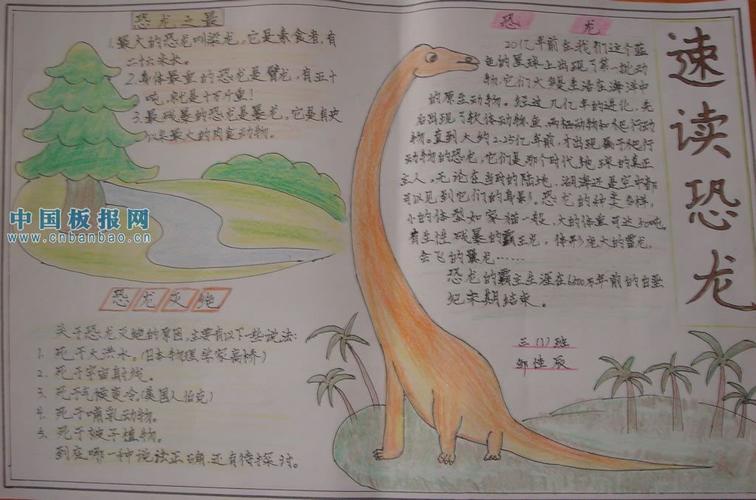 恐龙之最
1.最大的恐龙叫梁龙,它是素食者,有
二十六米长。
2.身体最重的恐龙是臂龙,有五十
吨,就是十万斤重!
3.最残暴的恐龙是暴龙,它是有史
以来最大的肉食动物。
中国板报网
www.cnbanbao.cn
恐龙灭绝
关于恐龙灭绝的原因,主要有以下一些说法:
1. 死于大洪水。(日本物理学家高桥)
2. 死于宇宙射线。
3. 死于气候变冷(美国人伯克)
4. 死于哺乳动物。
5. 死于被子植物。
到底哪一种说读正确,还有待探讨。
恐龙
20亿年前在我们这个蓝
色的星球上出现了第一批动
物,它们大多生活在海洋中
的原生动物。经过几亿年的进化,先
后出现了软体动物,鱼,两栖动物和爬行动
物。直到大约2.25亿年前,才出现属于爬行
动物的恐龙,它们是那个时代地球的真正
主人,无论在当时的陆地,湖海还是空中都
可以见到它们的身影!恐龙的种类多样,
小的体型如家猫一般,大的体重可达
有生性残暴的霸王龙,体形庞大的雷龙,
会飞的翼龙……
恐龙的霸主生涯在6500万年前的白垩
纪末期结束。
三(1)班
邹佳辰
速读恐龙